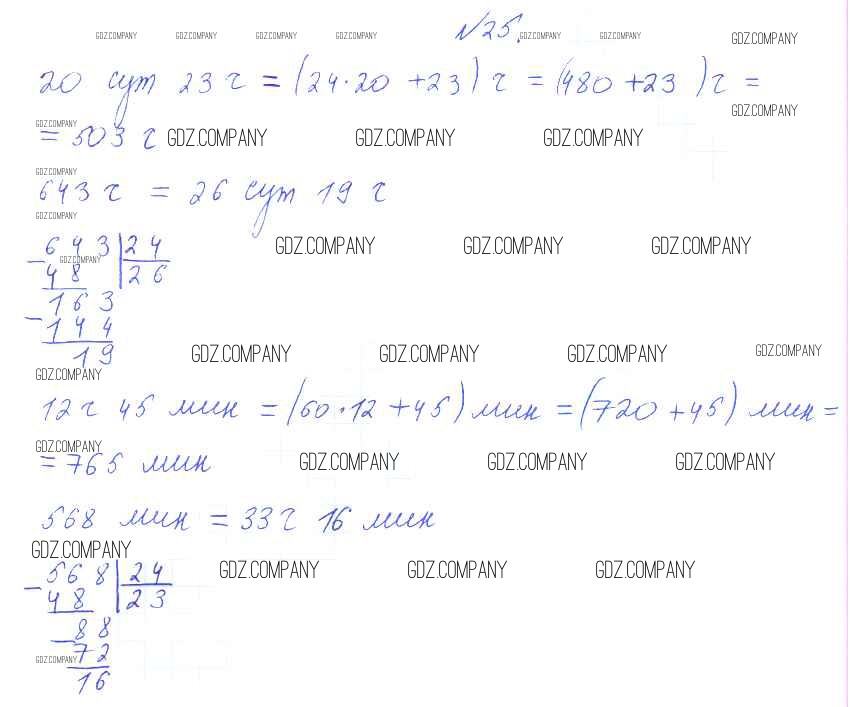 GDZ.COMPANY GDZ.COMPANY GDZ.COMPANY GDZ.COMPANY №25. GDZ.COMPANY GDZ.COMPANY GDZ.COMPANY
20 сут 23 ч = (24·20 + 23) ч = (480 + 23) ч =
GDZ.COMPANY GDZ.COMPANY
= 503 ч GDZ.COMPANY GDZ.COMPANY GDZ.COMPANY
GDZ.COMPANY
643 ч = 26 сут 19 ч
GDZ.COMPANY
643 | 24 GDZ.COMPANY GDZ.COMPANY GDZ.COMPANY
GDZ.COMPANY
- 48 | 26
163
- 144
19 GDZ.COMPANY GDZ.COMPANY GDZ.COMPANY GDZ.COMPANY
GDZ.COMPANY
12 ч 45 мин = (60·12 + 45) мин = (720 + 45) мин =
GDZ.COMPANY
= 765 мин GDZ.COMPANY GDZ.COMPANY GDZ.COMPANY
568 мин = 33 ч 16 мин
GDZ.COMPANY
568 | 24 GDZ.COMPANY GDZ.COMPANY GDZ.COMPANY
- 48 | 23
88
- 72
GDZ.COMPANY
16